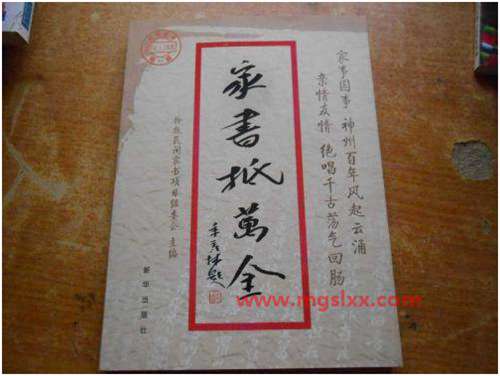 家事国事 神州百年风起云涌
亲情友情 绝唱千古荡气回肠
家書抵萬金
季羡林題
抢救民间家书项目组委会 主编
新华出版社
www.mgslxx.com